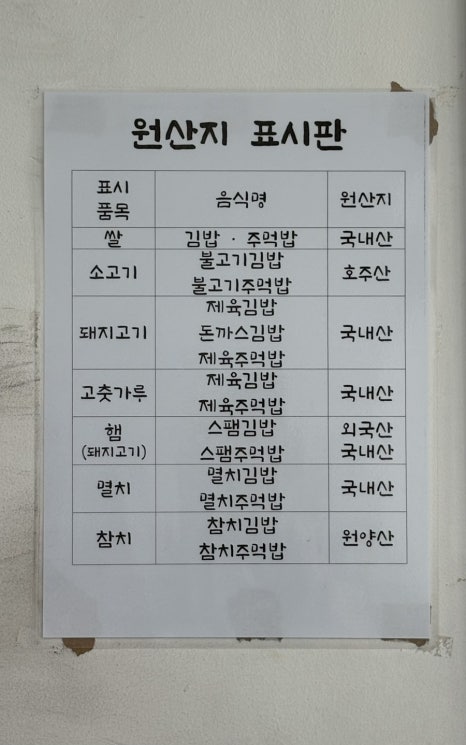 원산지 표시판
표시
품목
음식명
원산지
쌀
김밥 · 주먹밥
국내산
소고기
불고기김밥
불고기주먹밥
호주산
돼지고기
제육김밥
돈까스김밥
제육주먹밥
국내산
고춧가루
제육김밥
제육주먹밥
국내산
햄
(돼지고기)
스팸김밥
스팸주먹밥
외국산
국내산
멸치
멸치김밥
멸치주먹밥
국내산
참치
참치김밥
참치주먹밥
원양산